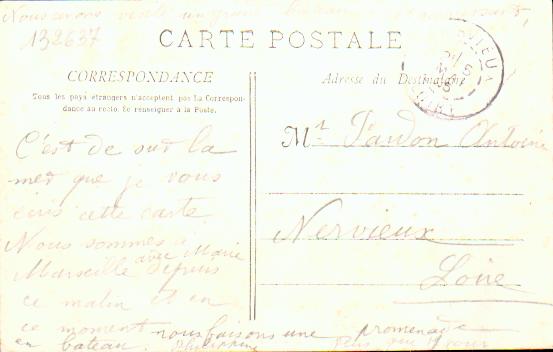 Nous avons visité un grand bateau
132637
CARTE POSTALE
CORRESPONDANCE
Tous les pays étrangers n'acceptent pas la Correspon-
dance au recto. Se renseigner à la Poste.
Adresse du Destinataire
C'est de sur la
mer que je vous
écris cette carte.
Nous sommes à
Marseille avec Marie depuis
ce matin et en
ce moment nous faisons une promenade
en bateau.
Philippine
Mr Pardon Antoine
Nervieux
Loire